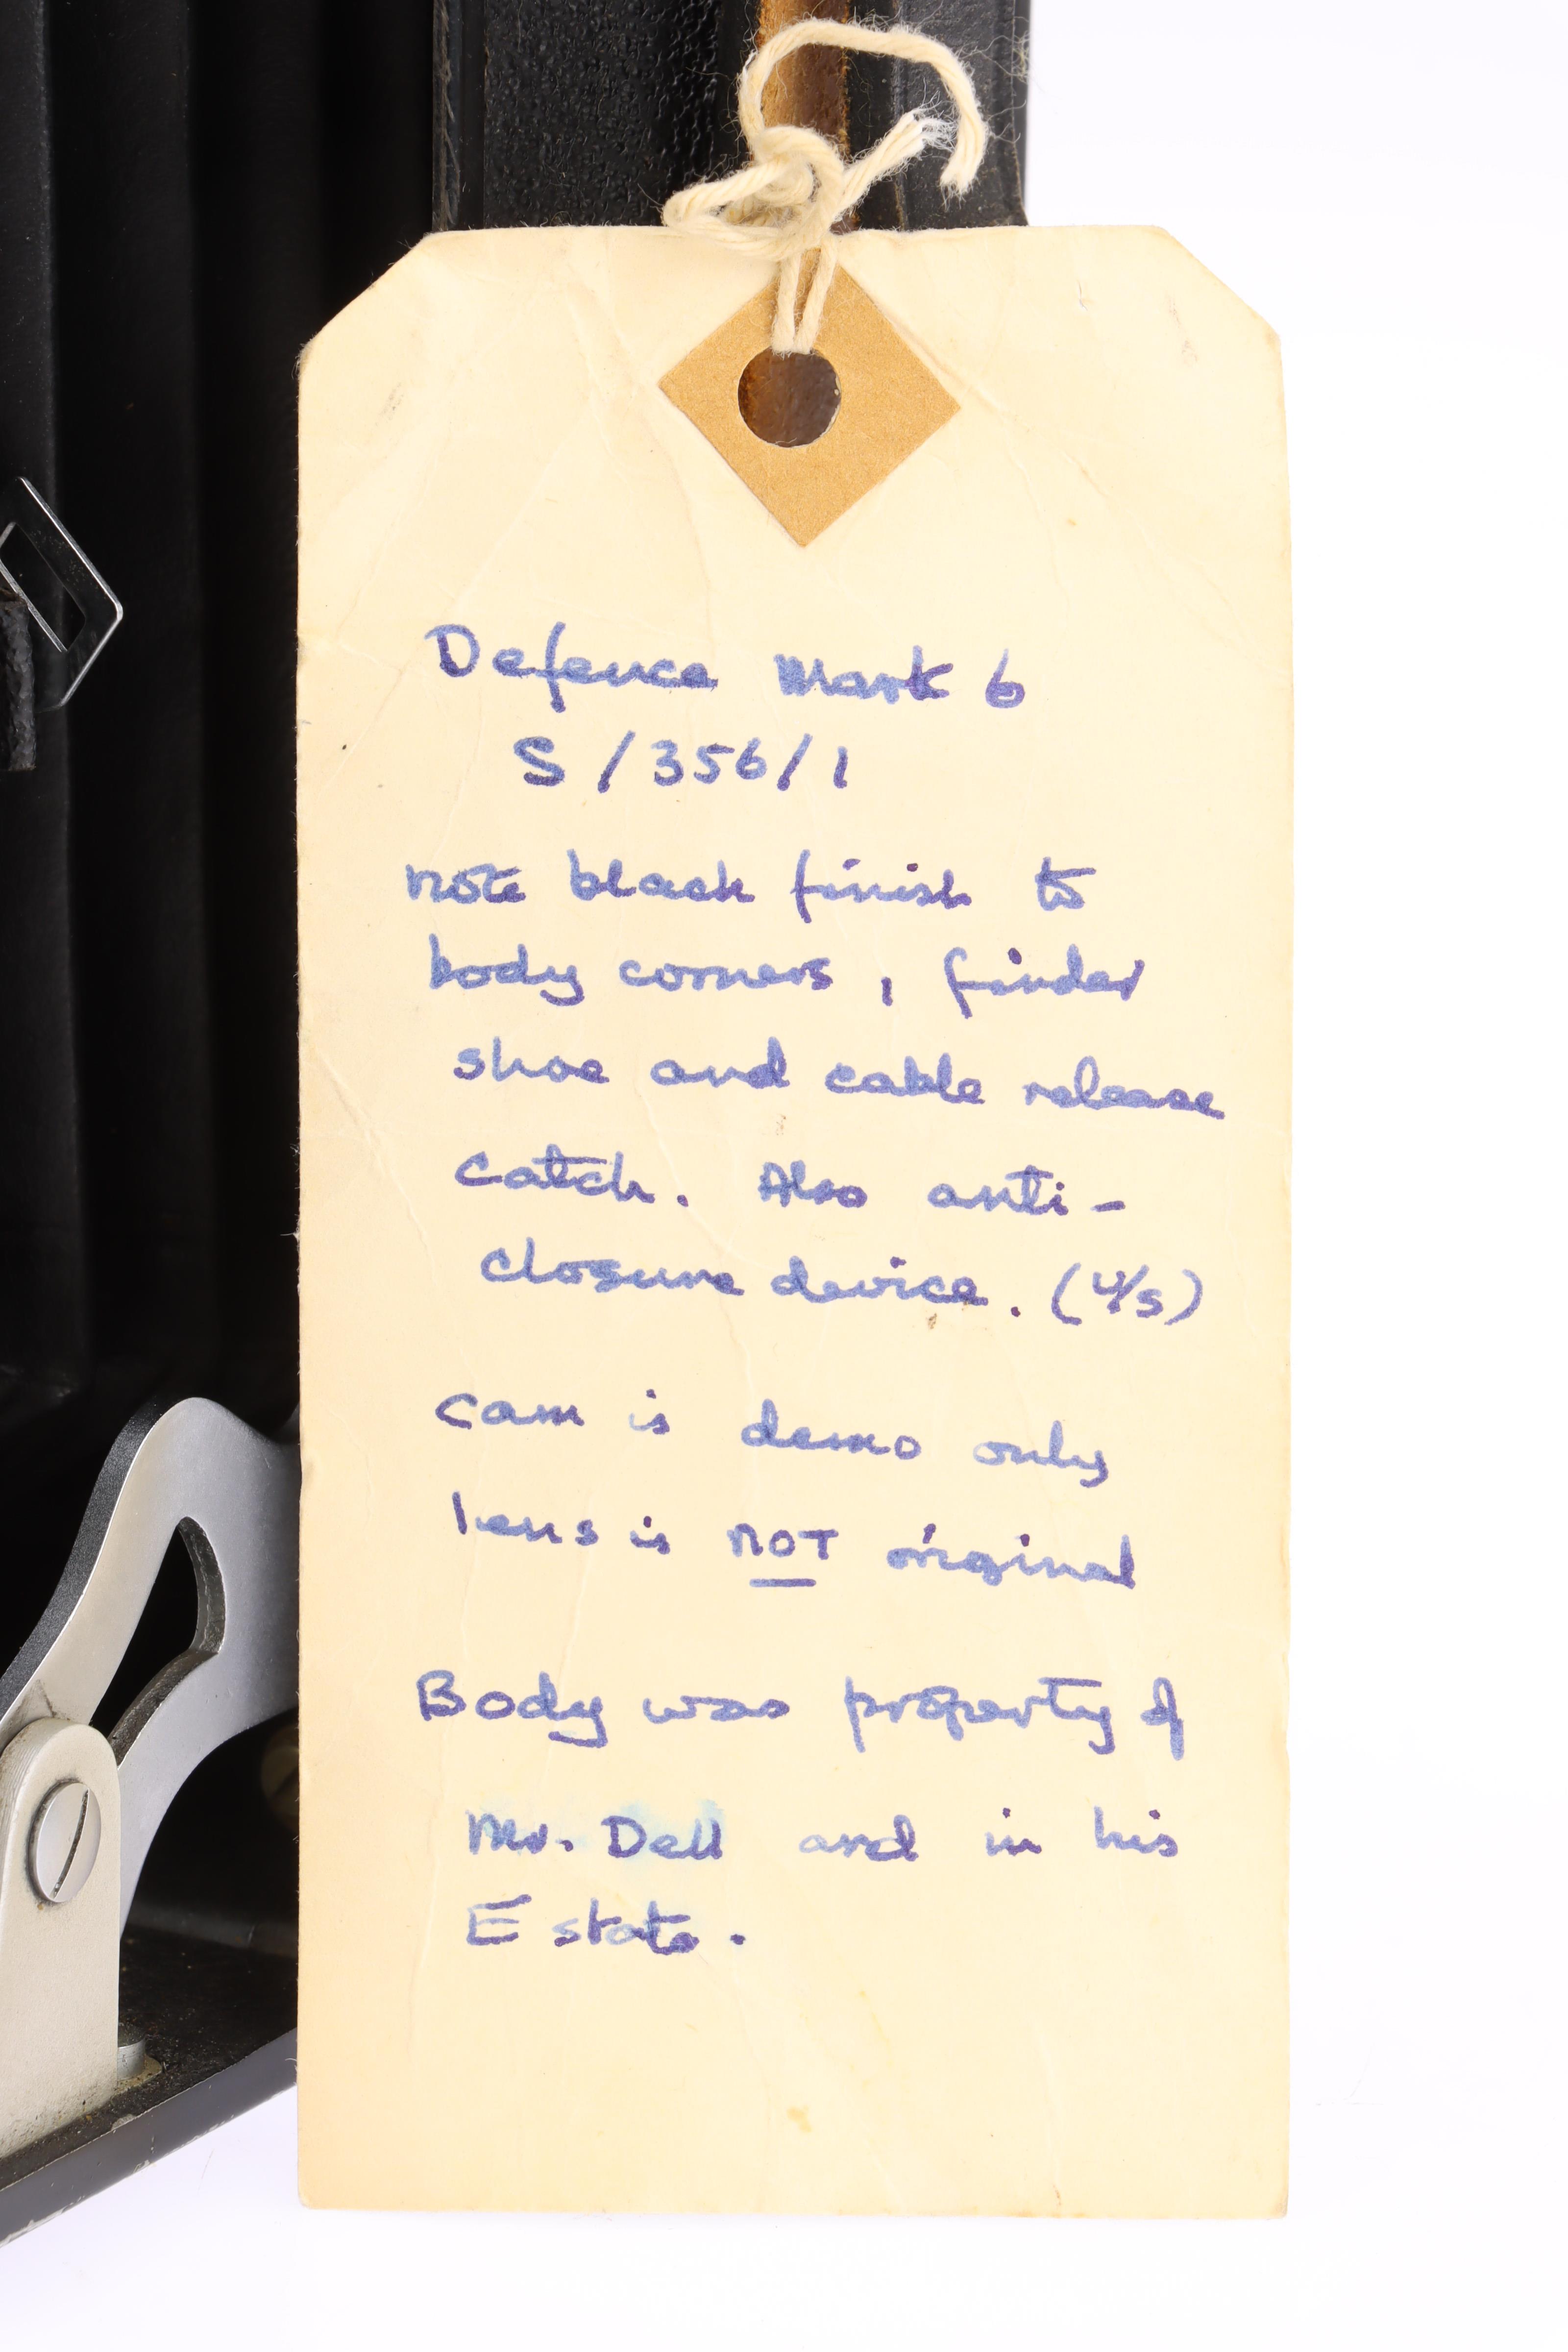 Defence Mark 6
S/356/1
note black finish to
body corners, finder
shoe and cable release
catch. Also anti-
closure device. (U/S)
Cam is demo only
lens is NOT original
Body was property of
Mr. Dell and in his
Estate.